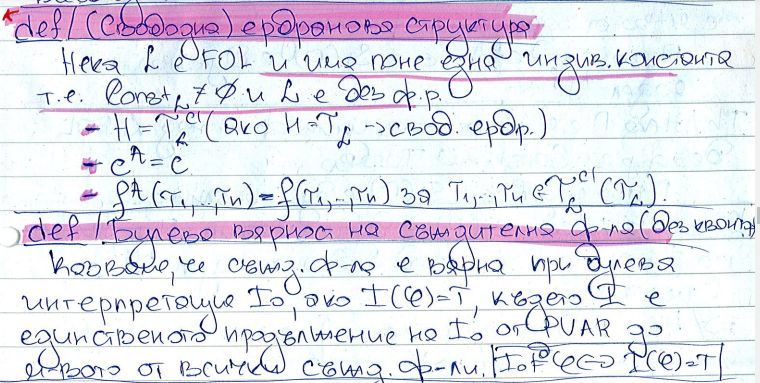 def/ (Свободна) ербранова структура
Нека L е FOL и има поне една индив. константа
т.е. Const_L ≠ ∅ и L е без ф.р.
- H = T_L^cl (ако H = T_L -> свод. ербр.)
- c^A = c
- f^A(τ1,..,τn) = f(τ1,..,τn) за τ1,..,τn ∈ T_L^cl (T_L).
def/ Булева вярност на съждителна ф-ла (без квант)
Казваме, че съжд. ф-ла е вярна при булева
интерпретация I₀, ако I(φ)=T, където I е
единственото продължение на I₀ от PVAR до
от всички съжд. ф-ли. I₀ ⊨ φ <=> I(φ)=T